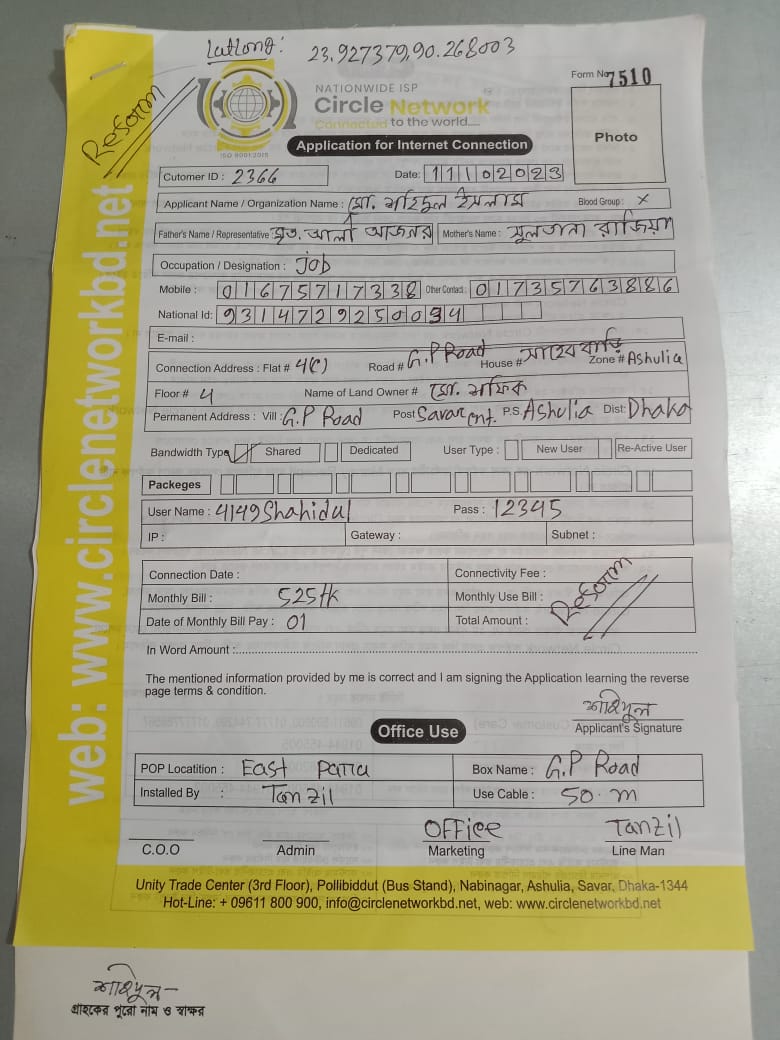 Latlong: 23.927379,90.268003
Resorm
Form No 7510
NATIONWIDE ISP
Circle Network
Connected to the world....
ISO 9001:2015
Photo
Application for Internet Connection
Cutomer ID : 2366 Date: 11102023
Applicant Name / Organization Name : মো. শহিদুল ইসলাম Blood Group : X
Father's Name / Representative মৃত. আলী আজগর Mother's Name : সুলতানা রাজিয়া
Occupation / Designation : job
Mobile : 01675717338 Other Contact : 01735763886
National Id: 9314729250094
E-mail :
Connection Address : Flat # 4(C) Road # G.P Road House # সাহেব বাড়ি Zone # Ashulia
Floor # 4 Name of Land Owner # মো. শফিক
Permanent Address : Vill : G.P Road Post Savar Cnt. P.S. Ashulia Dist: Dhaka
Bandwidth Type Shared Dedicated User Type : New User Re-Active User
Packeges
User Name : 4149Shahidul Pass : 12345
IP : Gateway : Subnet :
Connection Date : Connectivity Fee :
Monthly Bill : 525tk Monthly Use Bill :
Date of Monthly Bill Pay : 01 Total Amount :
Resorm
In Word Amount :
The mentioned information provided by me is correct and I am signing the Application learning the reverse
page terms & condition.
শহিদুল
Applicant's Signature
Office Use
POP Locatition : East Para Box Name : G.P Road
Installed By : Tanzil Use Cable : 50.m
OFFice Tanzil
C.O.O Admin Marketing Line Man
Unity Trade Center (3rd Floor), Pollibiddut (Bus Stand), Nabinagar, Ashulia, Savar, Dhaka-1344
Hot-Line: + 09611 800 900, info@circlenetworkbd.net, web: www.circlenetworkbd.net
web: www.circlenetworkbd.net
শহিদুল
গ্রাহকের পুরো নাম ও স্বাক্ষর